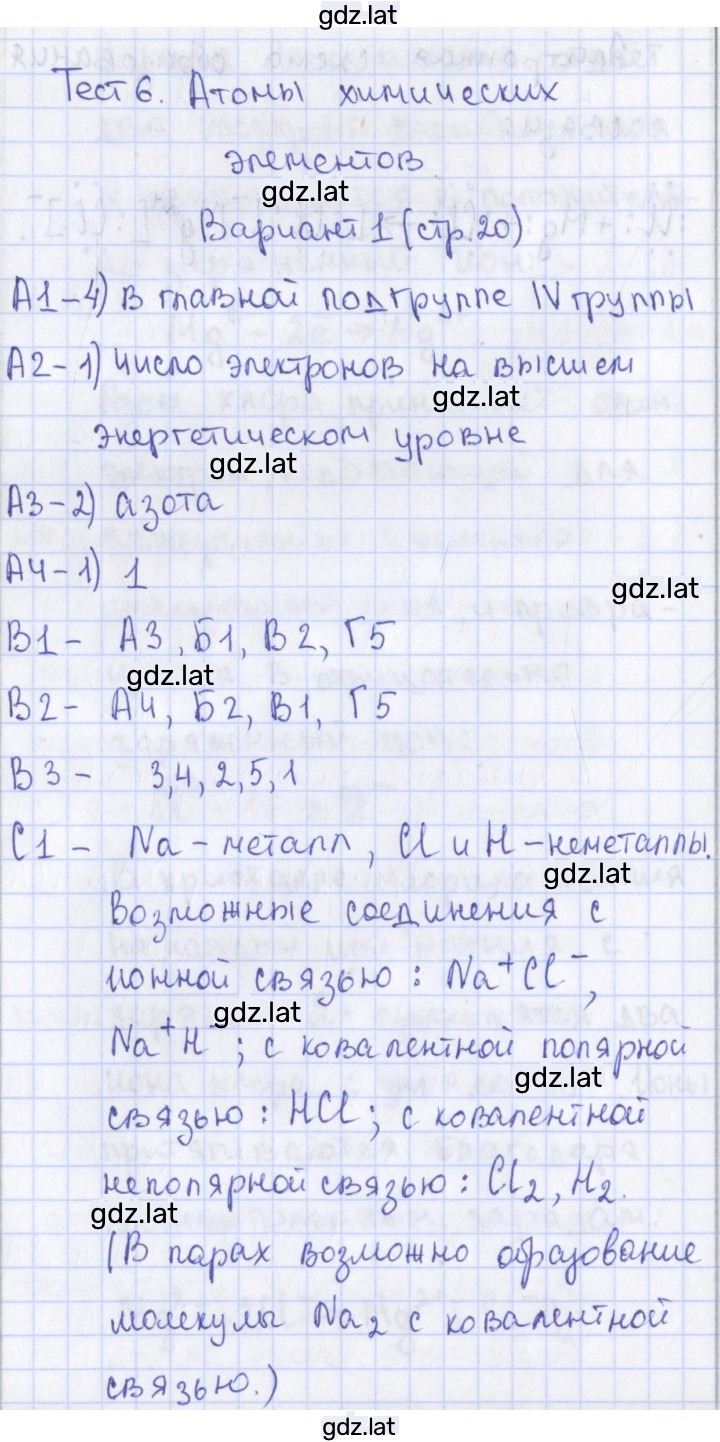 gdz.lat
Тест 6. Атомы химических
элементов
gdz.lat
Вариант 1 (стр.20)
А1-4) в главной подгруппе IV группы
А2-1) число электронов на высшем
gdz.lat
энергетическом уровне
gdz.lat
А3-2) азота
А4-1) 1
gdz.lat
В1- А3, Б1, В2, Г5
gdz.lat
В2- А4, Б2, В1, Г5
В3- 3,4,2,5,1
С1- Na-металл, Cl и H-неметаллы.
gdz.lat
Возможные соединения с
ионной связью: Na⁺Cl⁻,
gdz.lat
Na⁺H⁻; с ковалентной полярной
gdz.lat
связью: HCl; с ковалентной
неполярной связью: Cl₂, H₂.
gdz.lat
(В парах возможно образование
молекулы Na₂ с ковалентной
связью.)
gdz.lat